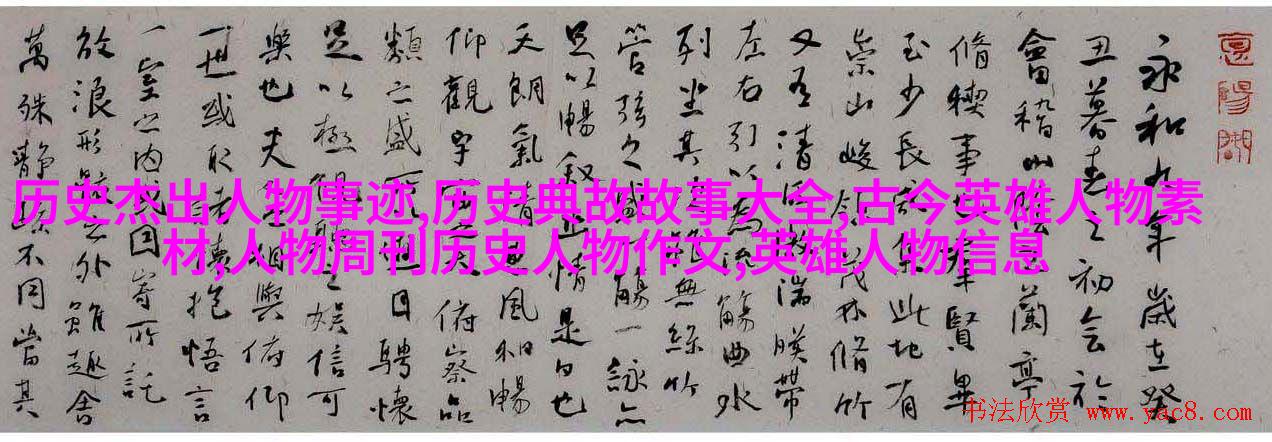 历史杰出人物事迹,历史典故故事大全,古今英雄人物素
材,人物周刊历史人物作文,英雄人物信息
永和九年歲在癸
丑暮春之初会於
會稽山陰之蘭亭
脩稧事也羣賢畢
至少長咸集此地有
崇山峻領茂林脩竹
又有清流激湍暎帶
左右引以為流觴曲水
列坐其次雖無絲竹
管弦之盛一觴一詠亦
足以暢叙幽情是日也
天朗氣清惠風和暢
仰觀宇宙之大俯察品
類之盛所以遊目騁懷
足以極視聽之娛信可
樂也夫人之相與俯仰
一世或取諸懷抱悟言
一室之内或因寄所託
放浪形骸之外雖趣舍
萬殊靜躁不同當其
书法欣赏 www.yac8.com